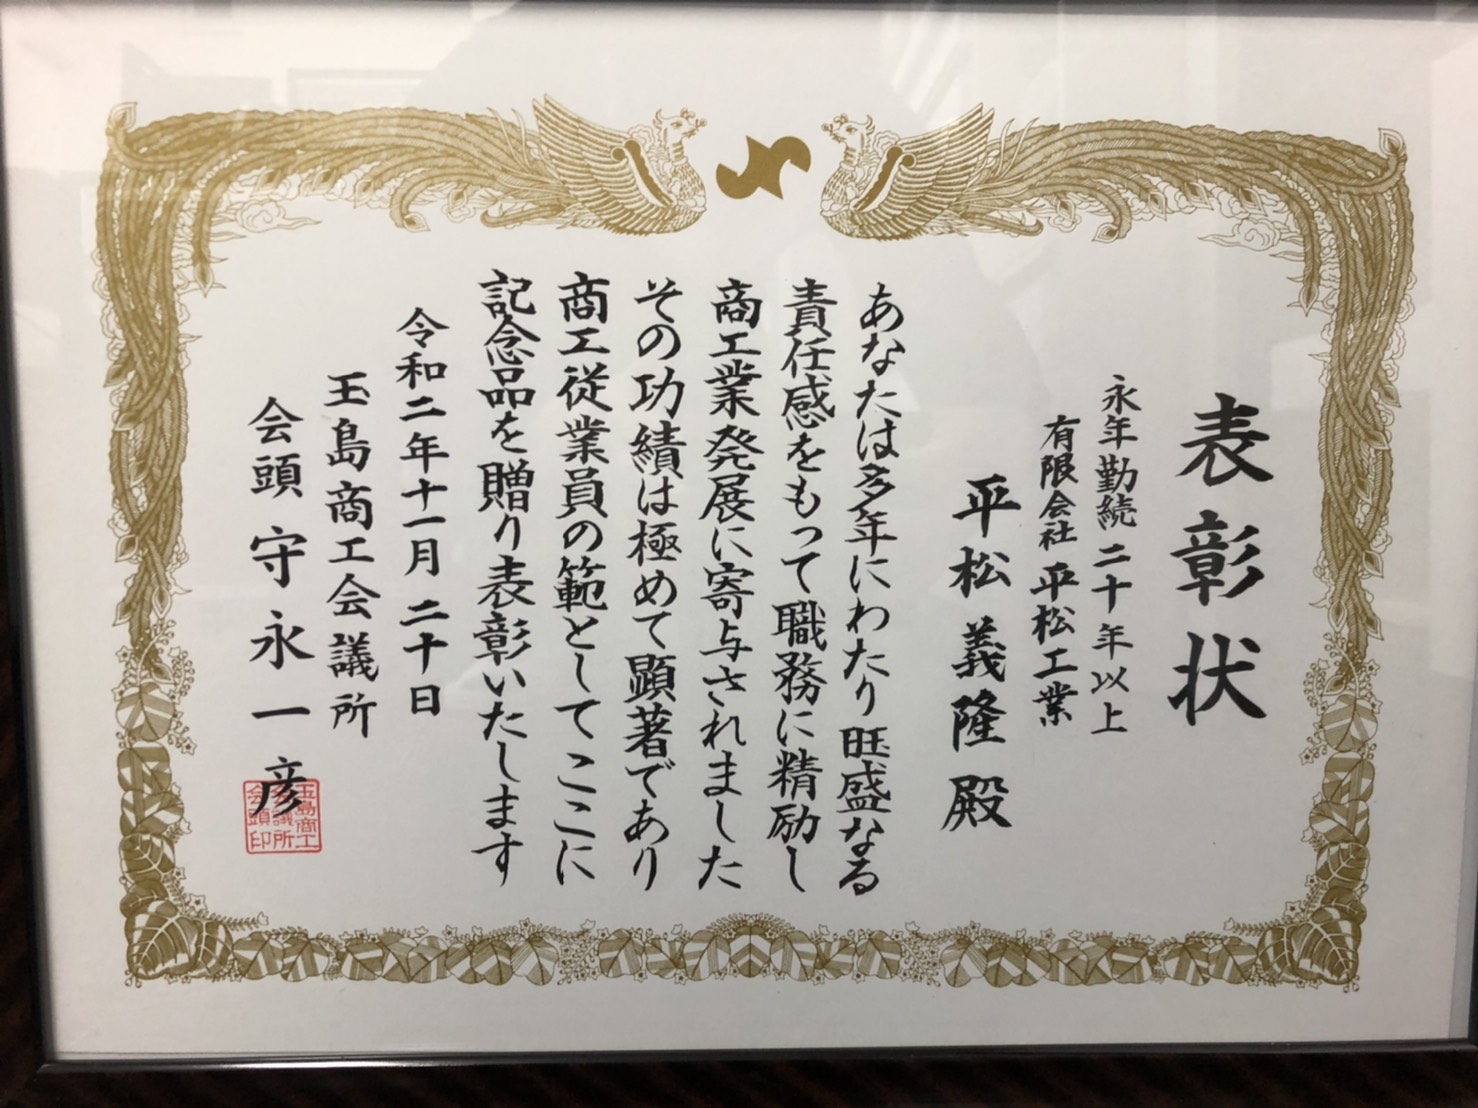 表彰状
永年勤続二十年以上
有限会社 平松工業
平松義隆殿
あなたは多年にわたり旺盛なる
責任感をもって職務に精励し
商工業発展に寄与されました
その功績は極めて顕著であり
商工従業員の範としてここに
記念品を贈り表彰いたします
令和二年十一月二十日
玉島商工会議所
会頭 守永一彦
玉島商工
会議所
会頭印